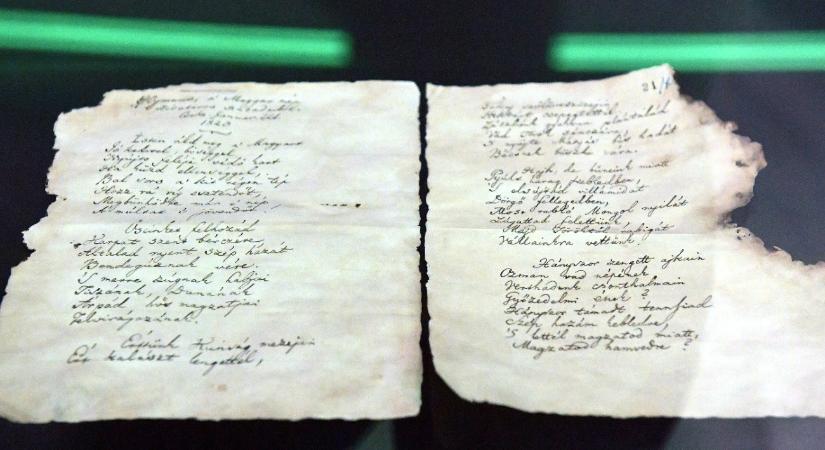 Hymnus, a' Magyar nép
zivataros századaiból.
Cseke Januar 22d
1823
Isten áldd meg a' Magyart
Jó kedvvel, bőséggel,
Nyújts feléje védő kart
Ha küzd ellenséggel;
Bal sors a' kit régen tép
Hozz rá víg esztendőt,
Megbűnhődte már e' nép
A' múltat 's jövendőt!
Őseinket felhozád
Kárpát szent bérczére,
Általad nyert szép hazát
Bendegúznak vére.
'S merre zúgnak habjai
Tiszának, Dunának,
Árpád hős magzatjai
Felvirágozának.
Értünk Kunság mezején
Ért kalászt lengettél,
21/
Tokaj szőlővesszein
Nektárt csepegtettél.
Zászlónk gyakran plántálád
Vad Török sánczára,
'S nyögte Mátyás bús hadát
Bécsnek büszke vára.
Hajh, de bűneink miatt
Gyúlt harag kebledben,
'S elsújtád villámidat
Dörgő fellegedben,
Most rabló Mongol nyilát
Zúgattad felettünk,
Majd Töröktől rabigát
Vállainkra vettünk.
Hányszor zengett ajkain
Ozman vad népének
Vert hadunk csonthalmain
Győzedelmi ének?
Hányszor támadt tenfiad
Szép hazám kebledre,
'S lettél magzatod miatt,
Magzatod hamvedre?